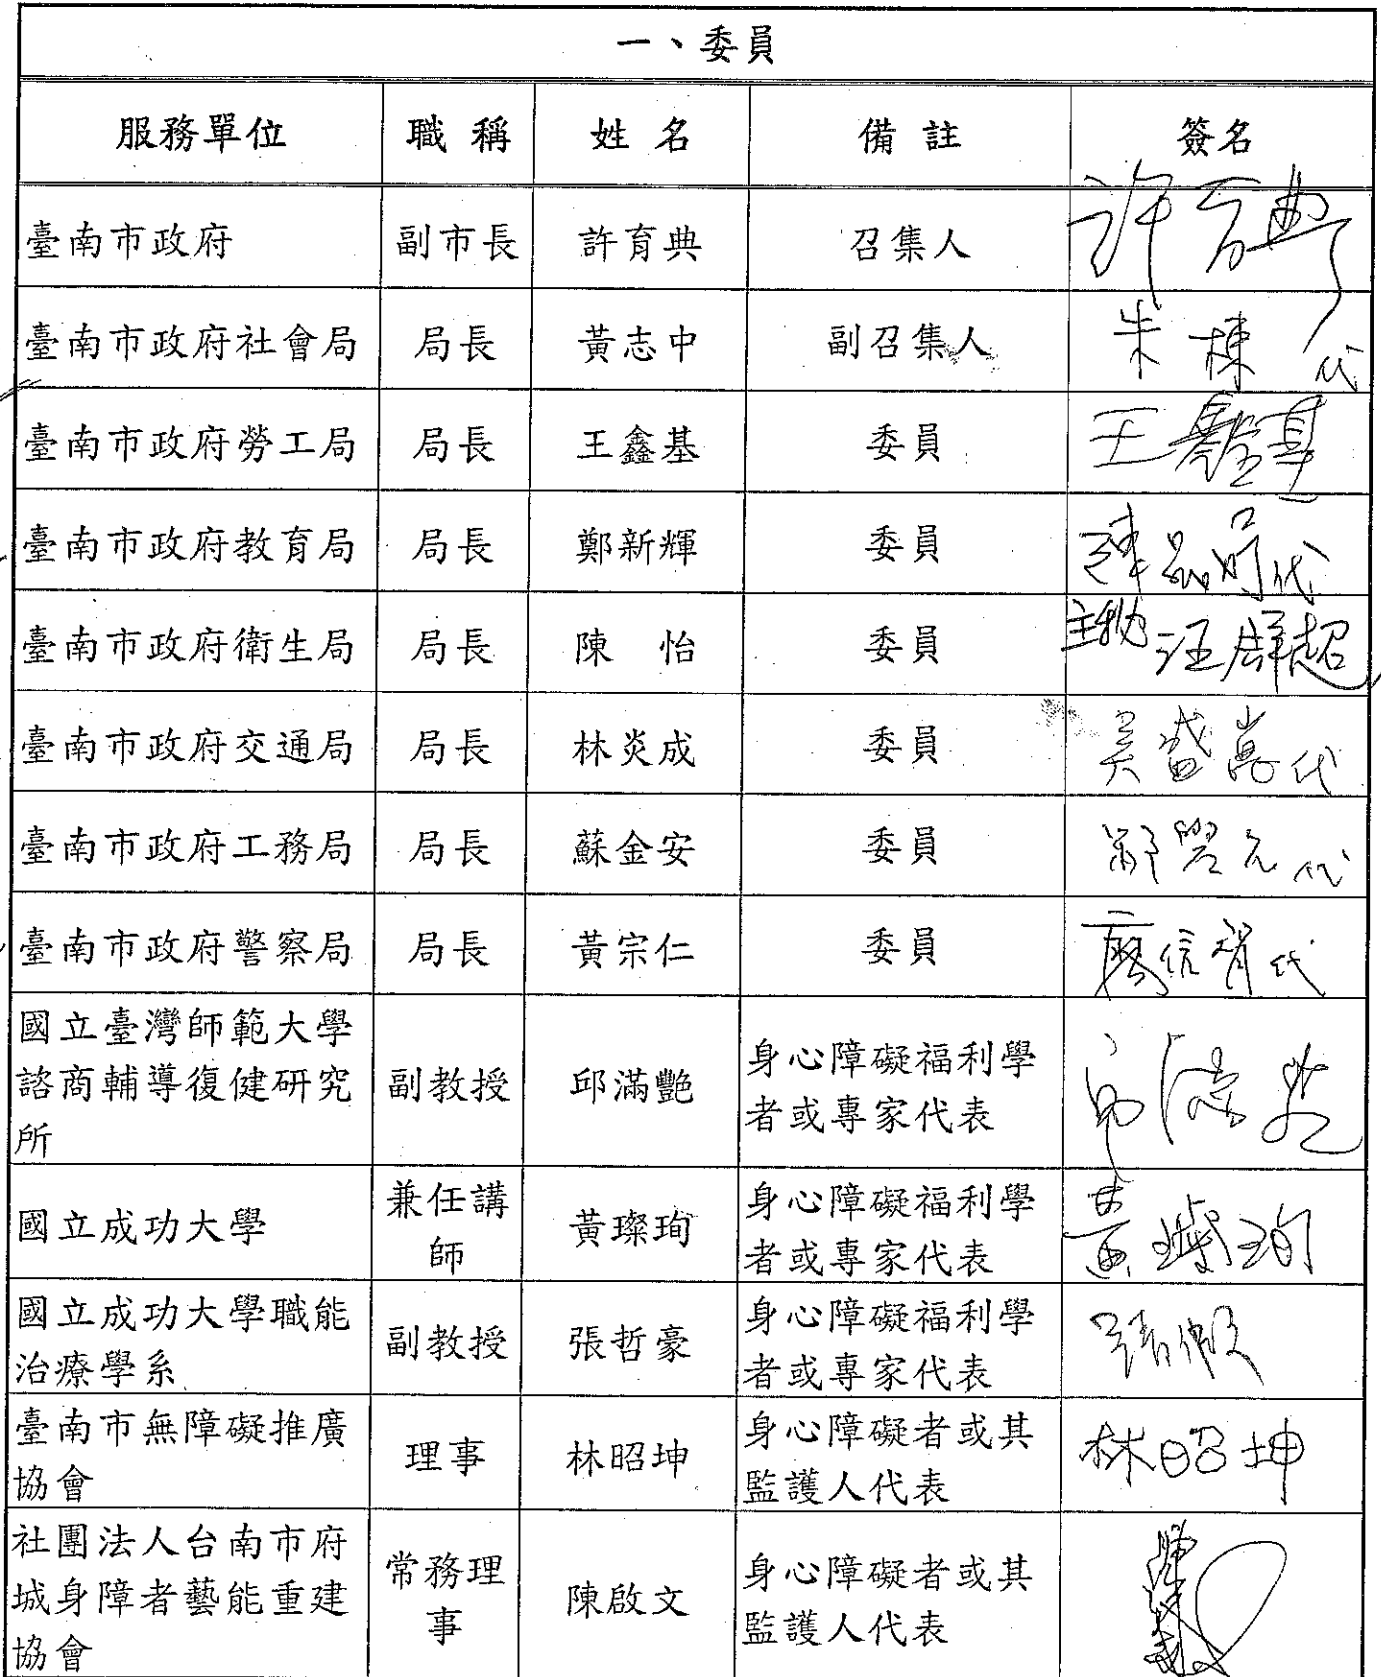 一、委員
服務單位 職稱 姓名 備註 簽名
臺南市政府 副市長 許育典 召集人 許育典
臺南市政府社會局 局長 黃志中 副召集人 朱棟 代
臺南市政府勞工局 局長 王鑫基 委員 王鑫基
臺南市政府教育局 局長 鄭新輝 委員 代
臺南市政府衛生局 局長 陳 怡 委員
臺南市政府交通局 局長 林炎成 委員 代
臺南市政府工務局 局長 蘇金安 委員 代
臺南市政府警察局 局長 黃宗仁 委員 代
國立臺灣師範大學
諮商輔導復健研究 副教授 邱滿艷 身心障礙福利學 邱滿艷
所 者或專家代表
國立成功大學 兼任講 黃璨珣 身心障礙福利學 黃璨珣
師 者或專家代表
國立成功大學職能 副教授 張哲豪 身心障礙福利學
治療學系 者或專家代表
臺南市無障礙推廣 理事 林昭坤 身心障礙者或其 林昭坤
協會 監護人代表
社團法人台南市府
城身障者藝能重建 常務理 陳啟文 身心障礙者或其
協會 事 監護人代表